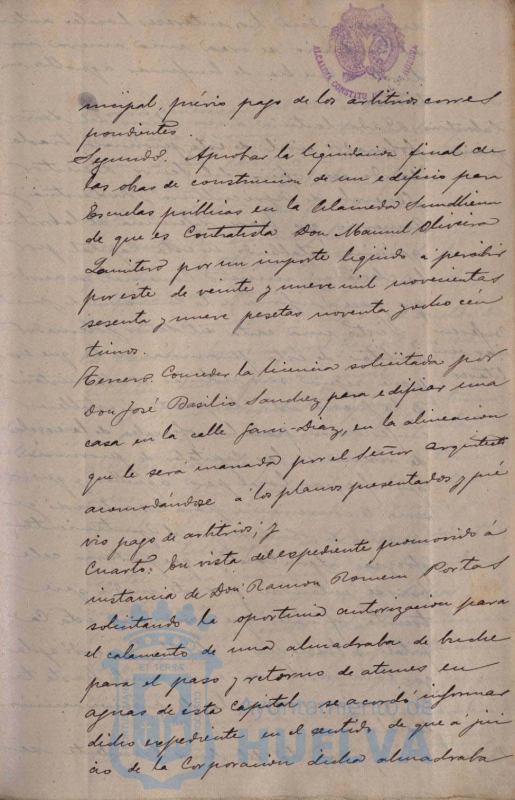 ALCALDIA CONSTITU
nicipal, prévio pago de los arbitrios corres
pondientes.
Segundo. Aprobar la liquidacion final de
las obras de construccion de un edificio para
Escuelas públicas en la Alameda Sundheim
de que es Contratista Don Manuel Oliveira
por un importe líquido á percibir
por este de veinte y nueve mil novecientas
sesenta y nueve pesetas noventa y ocho cén
timos.
Tercero. Conceder la licencia solicitada por
Don José Basilio Sanchez para edificar una
casa en la calle Garci-Diaz, en la alineacion
que le será marcada por el Señor Arquitecto
acomodándose á los planos presentados y pré
vio pago de arbitrios; y
Cuarto: En vista del espediente promovido á
instancia de Don Ramon Romeu Portas
solicitando la oportuna autorizacion para
el calamento de una almadraba de buche
para el paso y retorno de atunes en
aguas de ésta capital se acordó informar
dicho expediente en el sentido de que á jui
cio de la Corporacion dicha almadraba
Ayuntamiento de
HUELVA